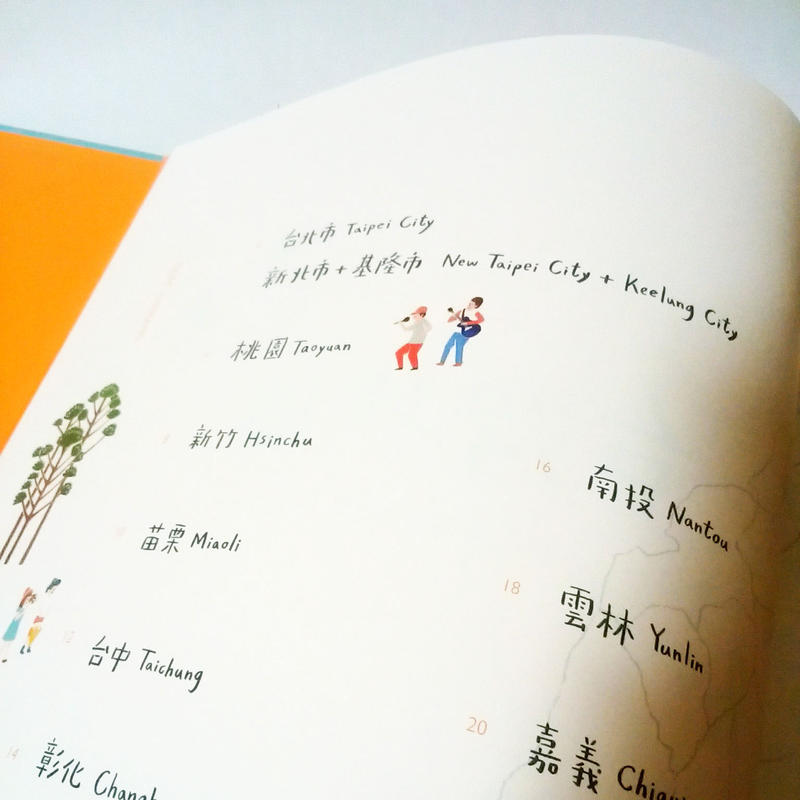 台北市 Taipei City
新北市+基隆市 New Taipei City + Keelung City
桃園 Taoyuan
新竹 Hsinchu
苗栗 Miaoli
12 台中 Taichung
14 彰化
16 南投 Nantou
18 雲林 Yunlin
20 嘉義